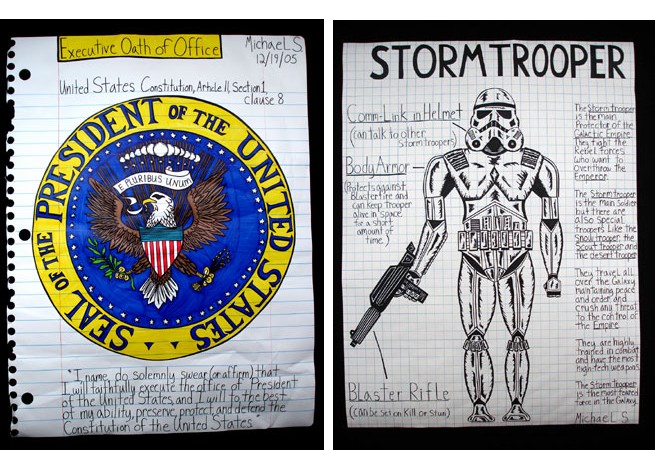 Executive Oath of Office
Michael S
12/19/05
United States Constitution, Article II, Section 1,
clause 8
SEAL OF THE PRESIDENT OF THE UNITED STATES
E PLURIBUS UNUM
"I name, do solemnly swear (or affirm) that
I will faithfully execute the office of President
of the United States, and I will to the best
of my ability, preserve, protect, and defend the
Constitution of the United States"
STORMTROOPER
Comm-Link in Helmet
(can talk to other
Stormtroopers)
Body Armor
(Protects against
Blasterfire and
can keep Trooper
alive in space
for a short
amount of
time)
Blaster Rifle
(can be set on Kill or Stun)
The Stormtrooper
is the main
Protector of the
Galactic Empire
They fight the
Rebel Forces
who want to
overthrow the
Emperor
The Stormtrooper
is the Main Soldier
but there are
also special
troopers Like the
Snowtrooper, the
Scout Trooper and
the desert trooper
They travel all
over the Galaxy
maintaining peace
and order and
crush any Threat
to the control of
the Empire
They are highly
trained in combat
and have the most
high-tech weapons
The Stormtrooper
is the most feared
force in the Galaxy.
Michael S